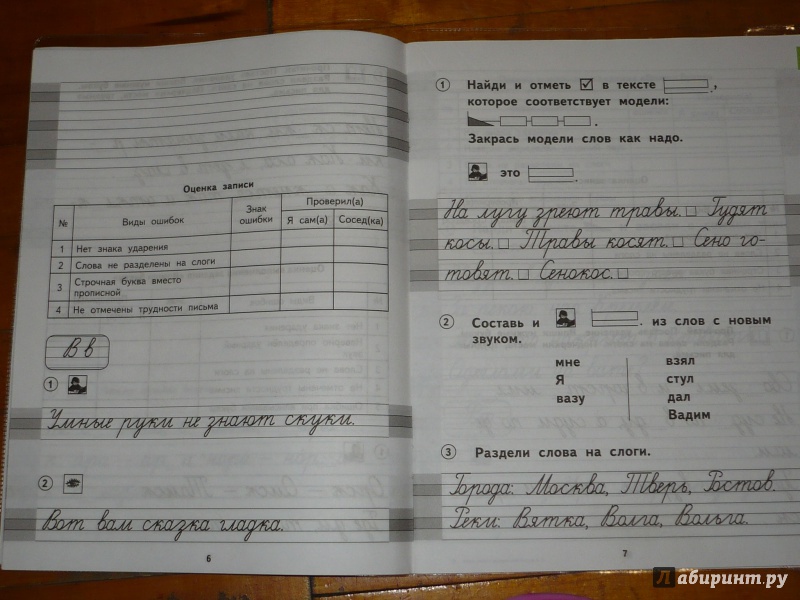 Оценка записи
№ Виды ошибок Знак ошибки Проверил(а)
Я сам(а) Сосед(ка)
1 Нет знака ударения
2 Слова не разделены на слоги
3 Строчная буква вместо прописной
4 Не отмечены трудности письма
В в
1
Умные руки не знают скуки.
2
Вот вам сказка гладка.
6
1 Найди и отметь ☑ в тексте ,
которое соответствует модели:
.
Закрась модели слов как надо.
это .
На лугу зреют травы. □ Гудят
косы. □ Травы косят. □ Сено го-
товят. □ Сенокос. □
2 Составь и . из слов с новым
звуком.
мне взял
Я стул
вазу дал
Вадим
3 Раздели слова на слоги.
Города: Москва, Тверь, Ростов.
Реки: Вятка, Волга, Вольга.
7
Лабиринт.ру